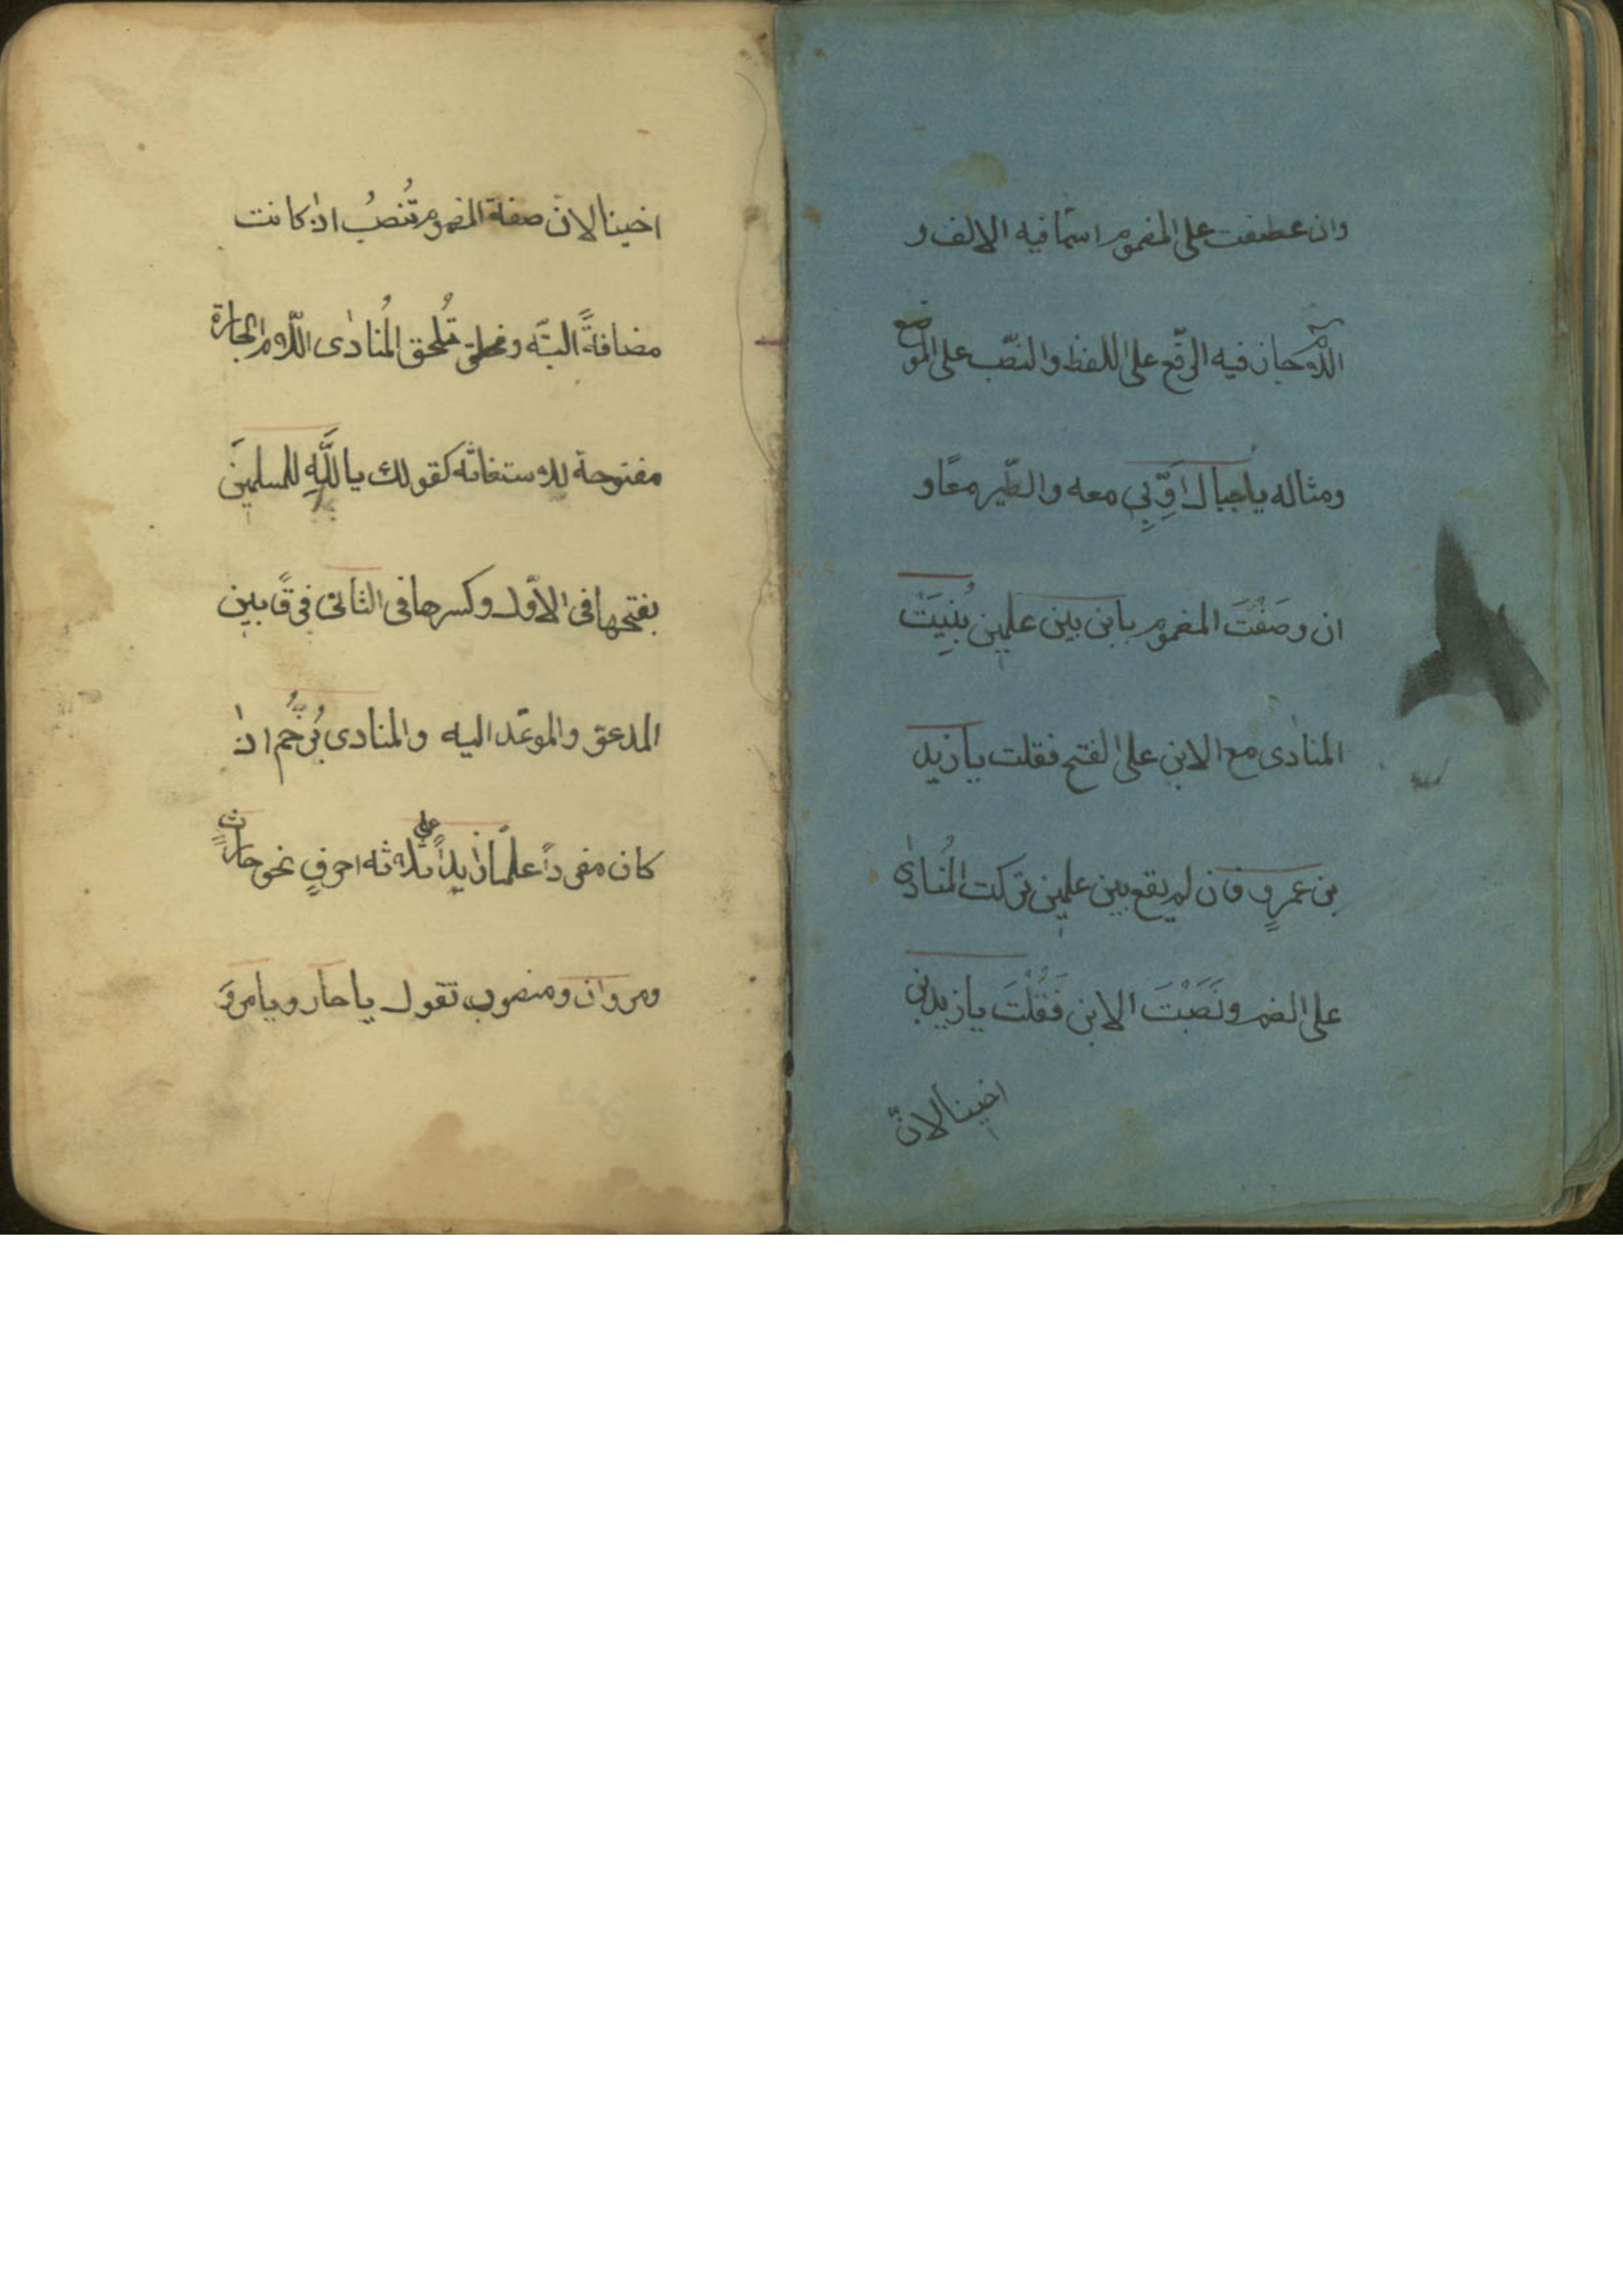 وان عطفت على المضموم اسمًا فيه الالف و
اللام جاز فيه الرفع على اللفظ والنصب على الموضع
ومثاله يا جبال اَوِّبِي معه والطّير معًا و
ان وصَفْتَ المضموم بابن بين علمين بُنِيَتْ
المنادى مع الابن على الفتح فقلت يا زيد
بن عمرٍو فان لم يقع بين علمين تركت المُنادى
على الضم ونَصَبْتَ الابن فَقُلْتَ يا زيد بن
اخينا لانّ
اخينا لان صفة المضموم تُنصبُ اذ كانت
مضافةً البتّه و تُلحق المُنادى اللّام الجارة
مفتوحة للاستغاثه كقولك يا للَّهِ للمسلمينَ
بفتحها فى الاوّل وكسرها فى الثانى فرقًا بين
المدعو والموعد اليه والمنادى يُرخَّم اذ
كان مفردًا علمًا زايدًا على ثلاثه احرفٍ نحو حارثٍ
ومروان ومنصور تقول يا حار ويا مروَ